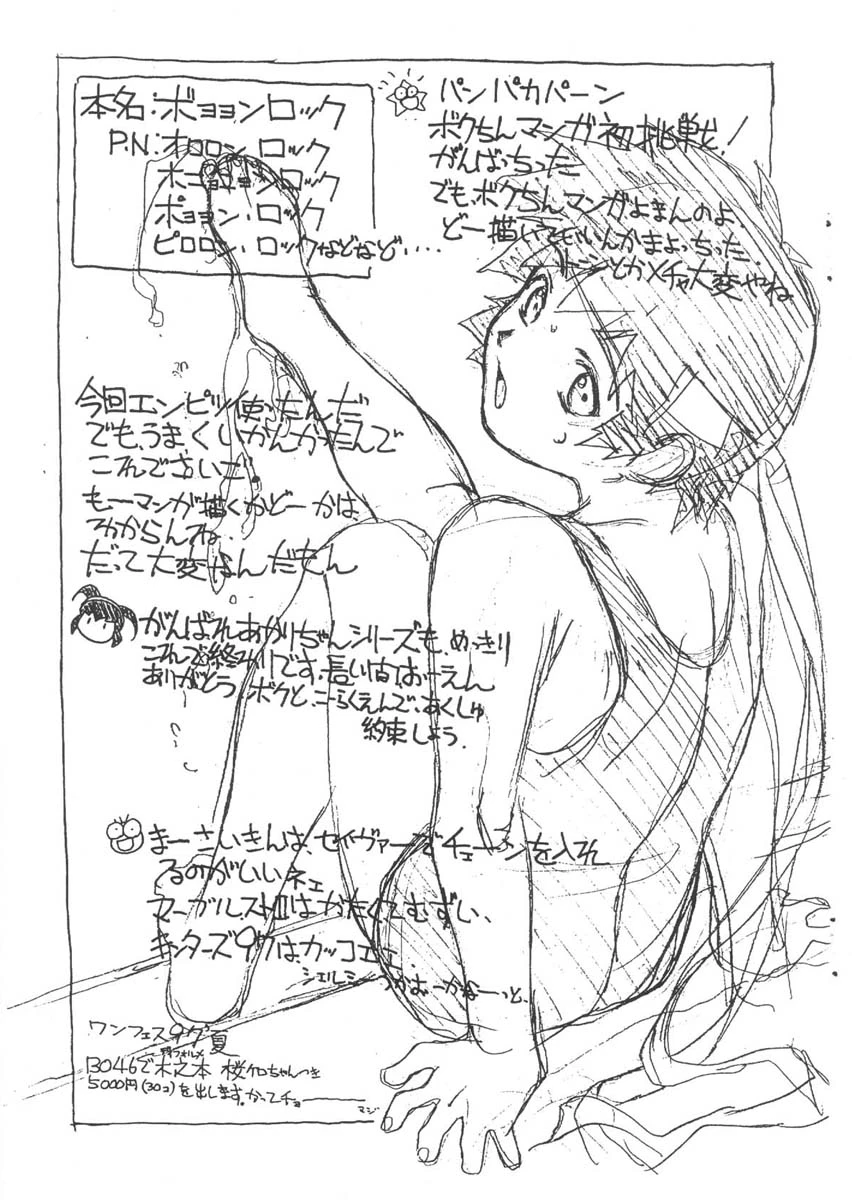 本名:ボョョンロック
P.N:オロロン ロック
ボニョョョンロック
ポョョン・ロック
ピロロン・ロックなどなど....
パンパカパーン
ボクちんマンガ初挑戦!
がんばっちった
でも、ボクちんマンガよまんのよ
どー描いていいんかまよっちった.
とかメチャ大変やね
今回エンピツ使ったんだ
でも、うまくいがんかったんで
これでさいご.
もーマンガが描くかどーかは、
わからんね.
だって大変なんだもん
がんばれあかりちゃんシリーズも、めっきり
これで終わりです.長い間おーえん
ありがとう ボクと、こーらくえんで、あくしゅ
約束しよう.
まーさいきんは、セイヴァーでチェーンを入れ
るのがいいネェ
マーヴルストIIはかたくてむずい、
キングターズ97は、カッコエー
シェルミー つかおーかなーっと、
ワンフェス97夏
B046で木之本 桜ケロちゃんつき
5000円(30コ)を出します.かってチョーーー
マジ